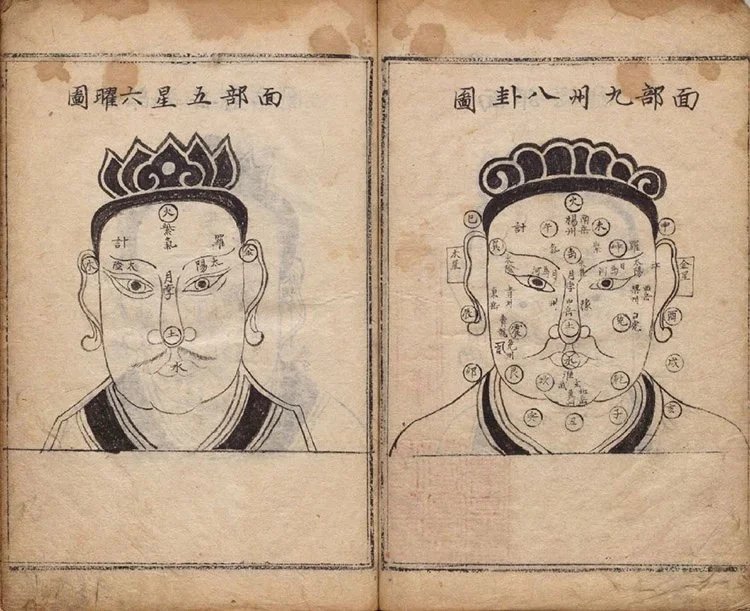 面部九州八卦圖
火
揚州
南岳
木
午
計
羅
申
巳
巽
太陽
太陰
金星
木星
月孛
中岳
河
河
酉
辰
兌
青州
東岳
土
震
青龍
兗州
水
戌
卯
艮
坎
乾
冀州
亥
子
丑
面部五星六曜圖
火
紫氣
羅
計
金
太陽
太陰
月孛
土
水